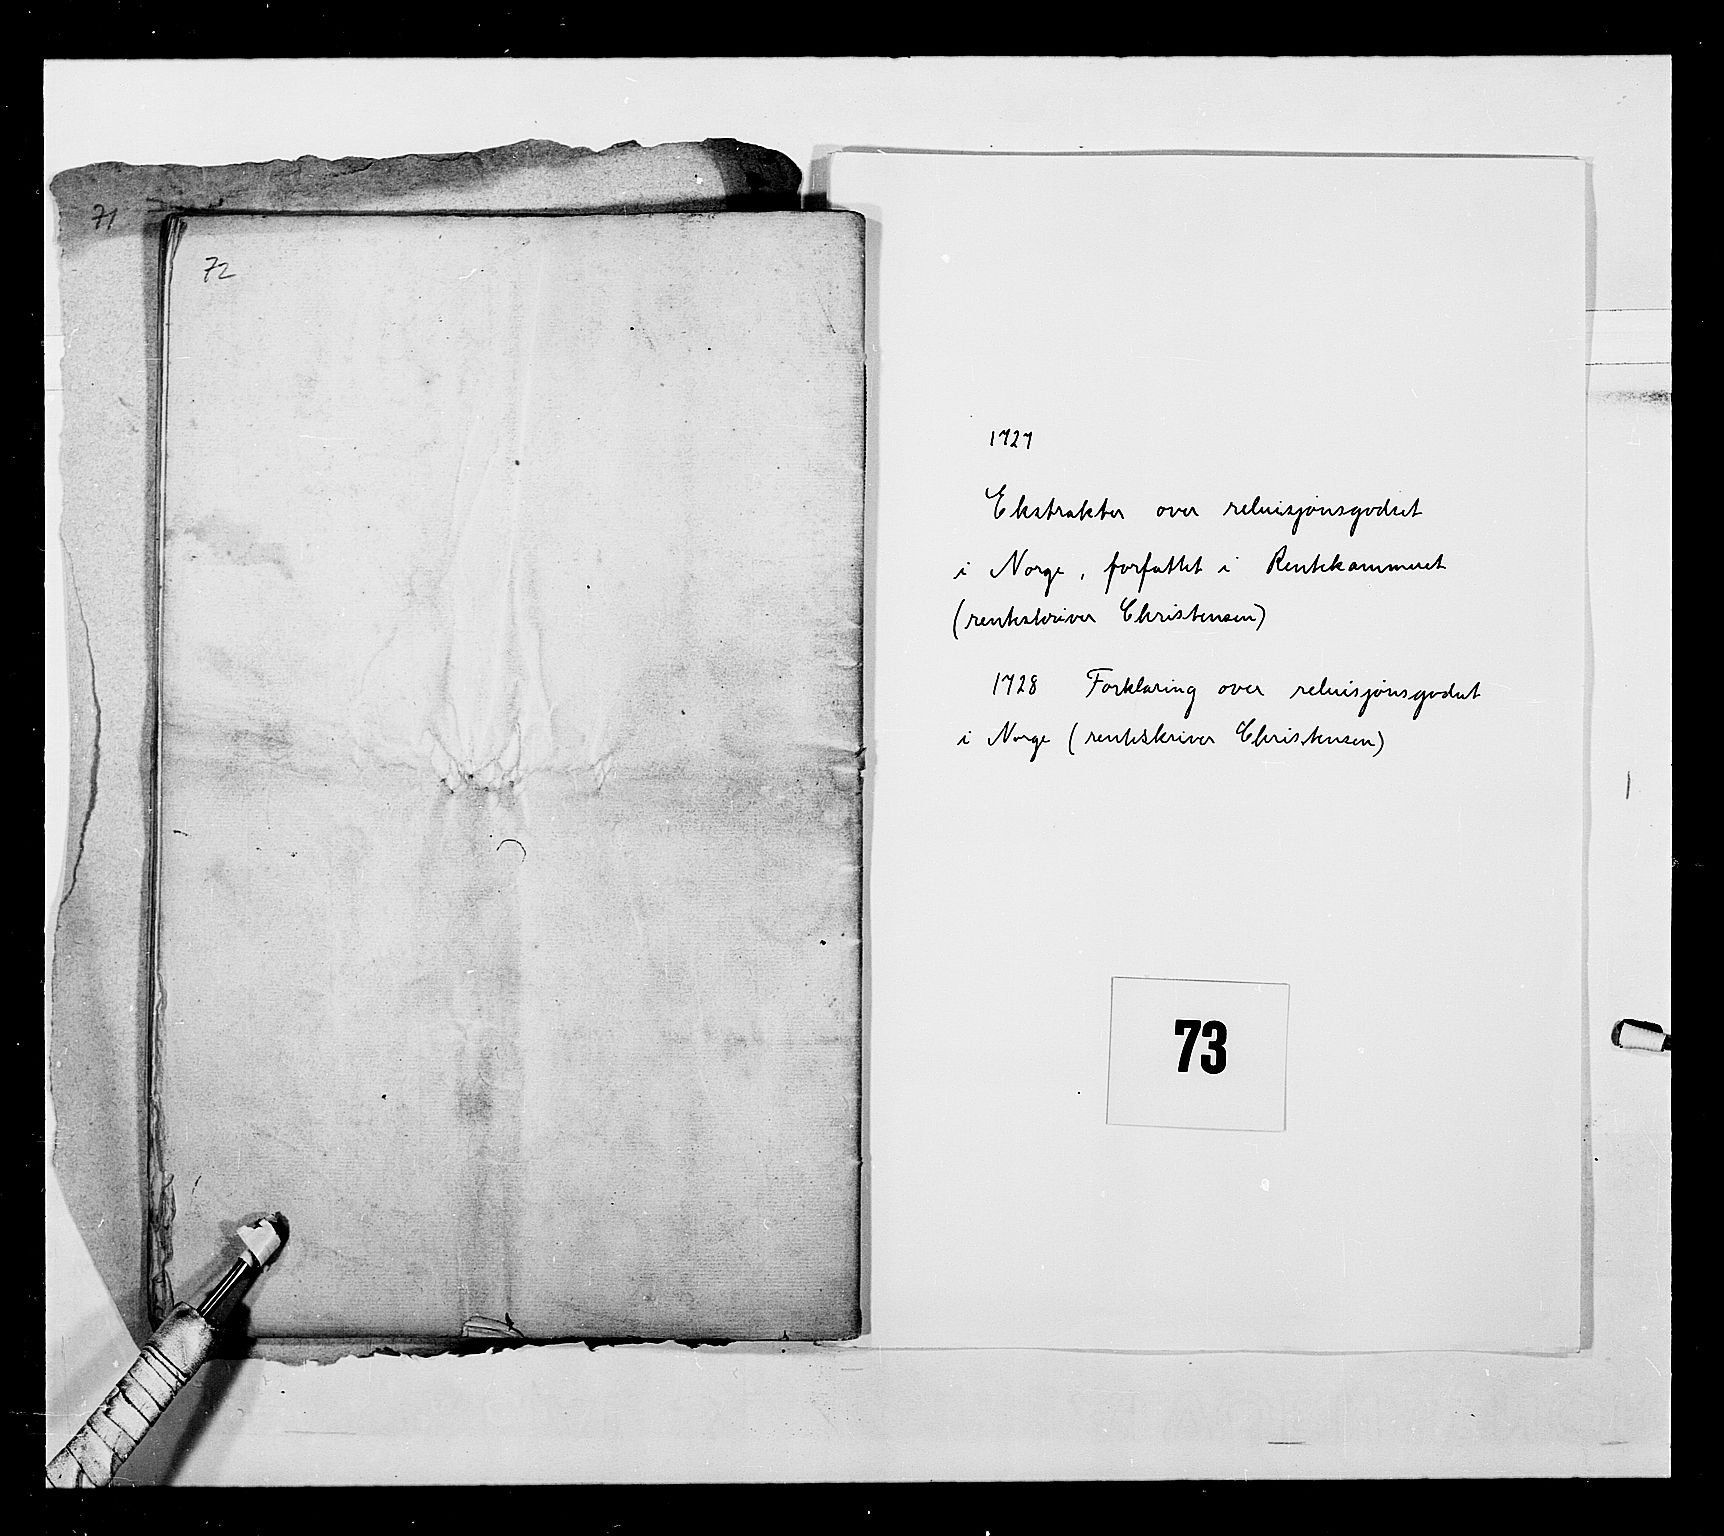 71
72
1727
Ekstrakter over reluisjonsgodset
i Norge, forfattet i Rentekammeret
(renteskriver Christensen)
1728 Forklaring over reluisjonsgodset
i Norge (renteskriver Christensen)
73